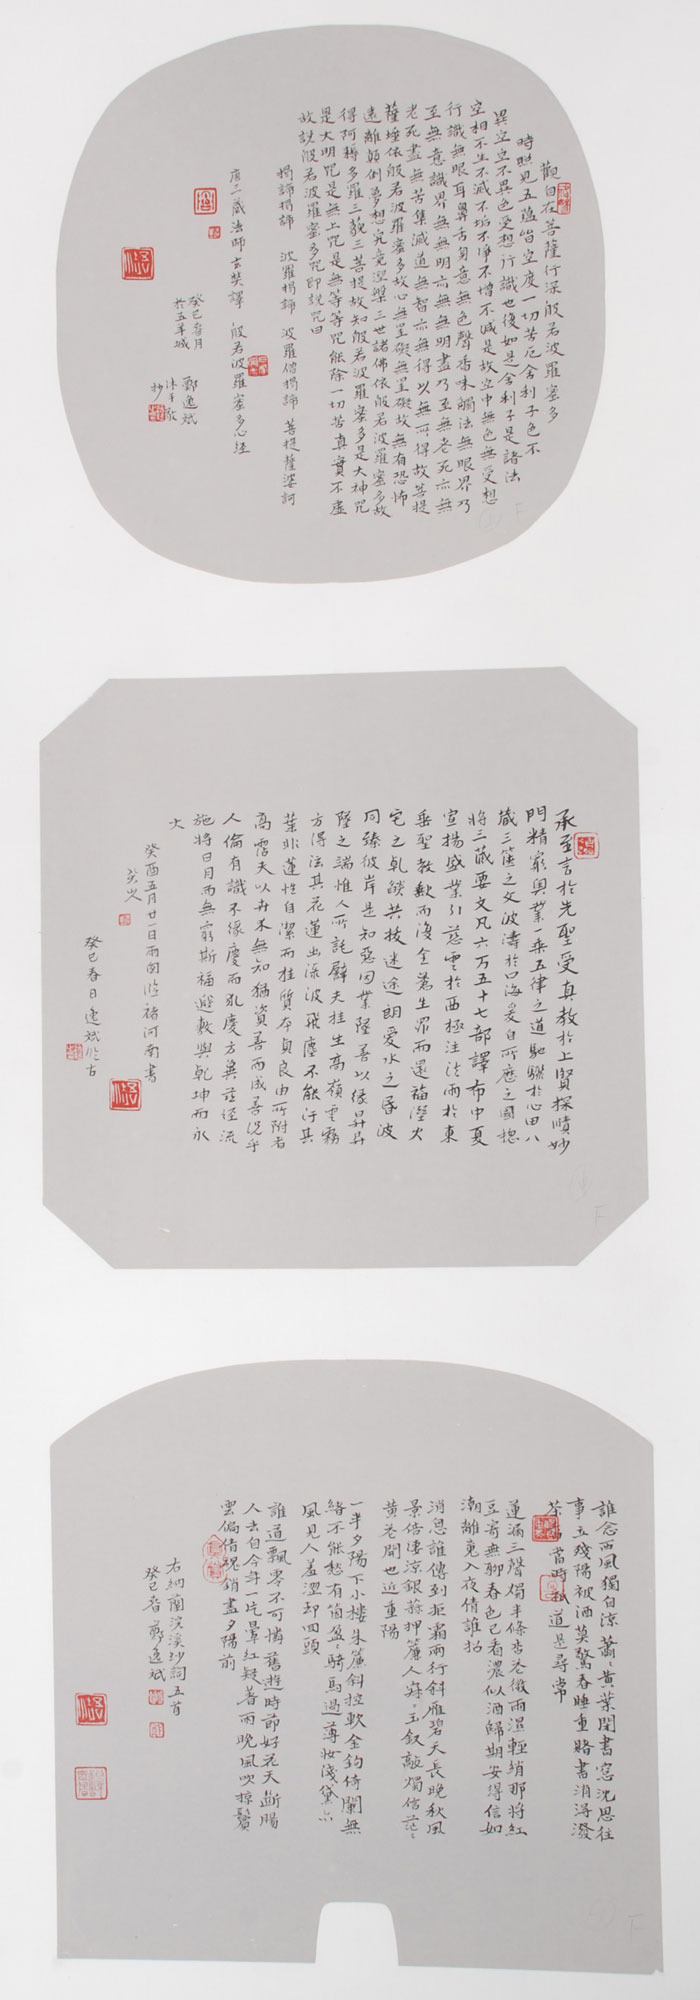 觀自在菩薩行深般若波羅蜜多
時照見五蘊皆空度一切苦厄舍利子色不
異空空不異色受想行識也復如是舍利子是諸法
空相不生不滅不垢不淨不增不減是故空中無色無受想
行識無眼耳鼻舌身意無色聲香味觸法無眼界乃
至無意識界無無明亦無無明盡乃至無老死亦無
老死盡無苦集滅道無智亦無得以無所得故菩提
薩埵依般若波羅蜜多故心無罣礙無罣礙故無有恐怖
遠離顛倒夢想究竟涅槃三世諸佛依般若波羅蜜多故
得阿耨多羅三藐三菩提故知般若波羅蜜多是大神咒
是大明咒是無上咒是無等等咒能除一切苦真實不虛
故說般若波羅蜜多咒即說咒曰
揭諦揭諦 波羅揭諦 波羅僧揭諦 菩提薩婆訶
唐三藏法師玄奘譯 般若波羅蜜多心經
癸巳春月
於五羊城
鄭逸斌
沐手敬
抄
承至言於先聖受真教於上賢探賾妙
門精窮奧業一乘五律之道馳驟於心田八
藏三篋之文波濤於口海爰自所歷之國總
將三藏要文凡六百五十七部譯布中夏
宣揚盛業引慈雲於西極注法雨於東
垂聖教缺而復全蒼生罪而還福溼火
宅之乾燄共拔迷途朗愛水之昏波
同臻彼岸是知惡因業墜善以緣昇昇
墜之端惟人所託譬夫桂生高嶺雲霧
方得泫其花蓮出淥波飛塵不能汙其
葉非蓮性自潔而桂質本貞良由所附者
高
人倫有識不緣慶而求慶方冀茲經流
施將日月而無窮斯福遐敷與乾坤而永
大
癸酉五月廿一日雨窗臨褚河南書
癸巳春日逸斌臨古
誰念西風獨自涼蕭蕭黃葉閉書窗沈思往
事立殘陽被酒莫驚春睡重賭書消得潑
茶香當時祇道是尋常
蓮漏三聲燭半條杏花微雨濕輕綃那將紅
豆寄無聊春色已看濃似酒歸期安得信如
潮離魂入夜倩誰招
消息誰傳到拒霜兩行斜雁碧天長晚秋風
景倍淒涼銀蒜押簾人寂寂玉釵敲燭信茫茫
黃花開也近重陽
一半夕陽下小樓朱簾斜控軟金鉤倚闌無
緒不能愁有箇盈盈騎馬過薄妝淺黛亦
風見人羞澀却回頭
誰道飄零不可憐舊遊時節好花天斷腸
人去自今年一片暈紅疑著雨晚風吹掠鬢
雲偏倩魂銷盡夕陽前
右納蘭浣溪沙詞五首
癸巳春鄭逸斌